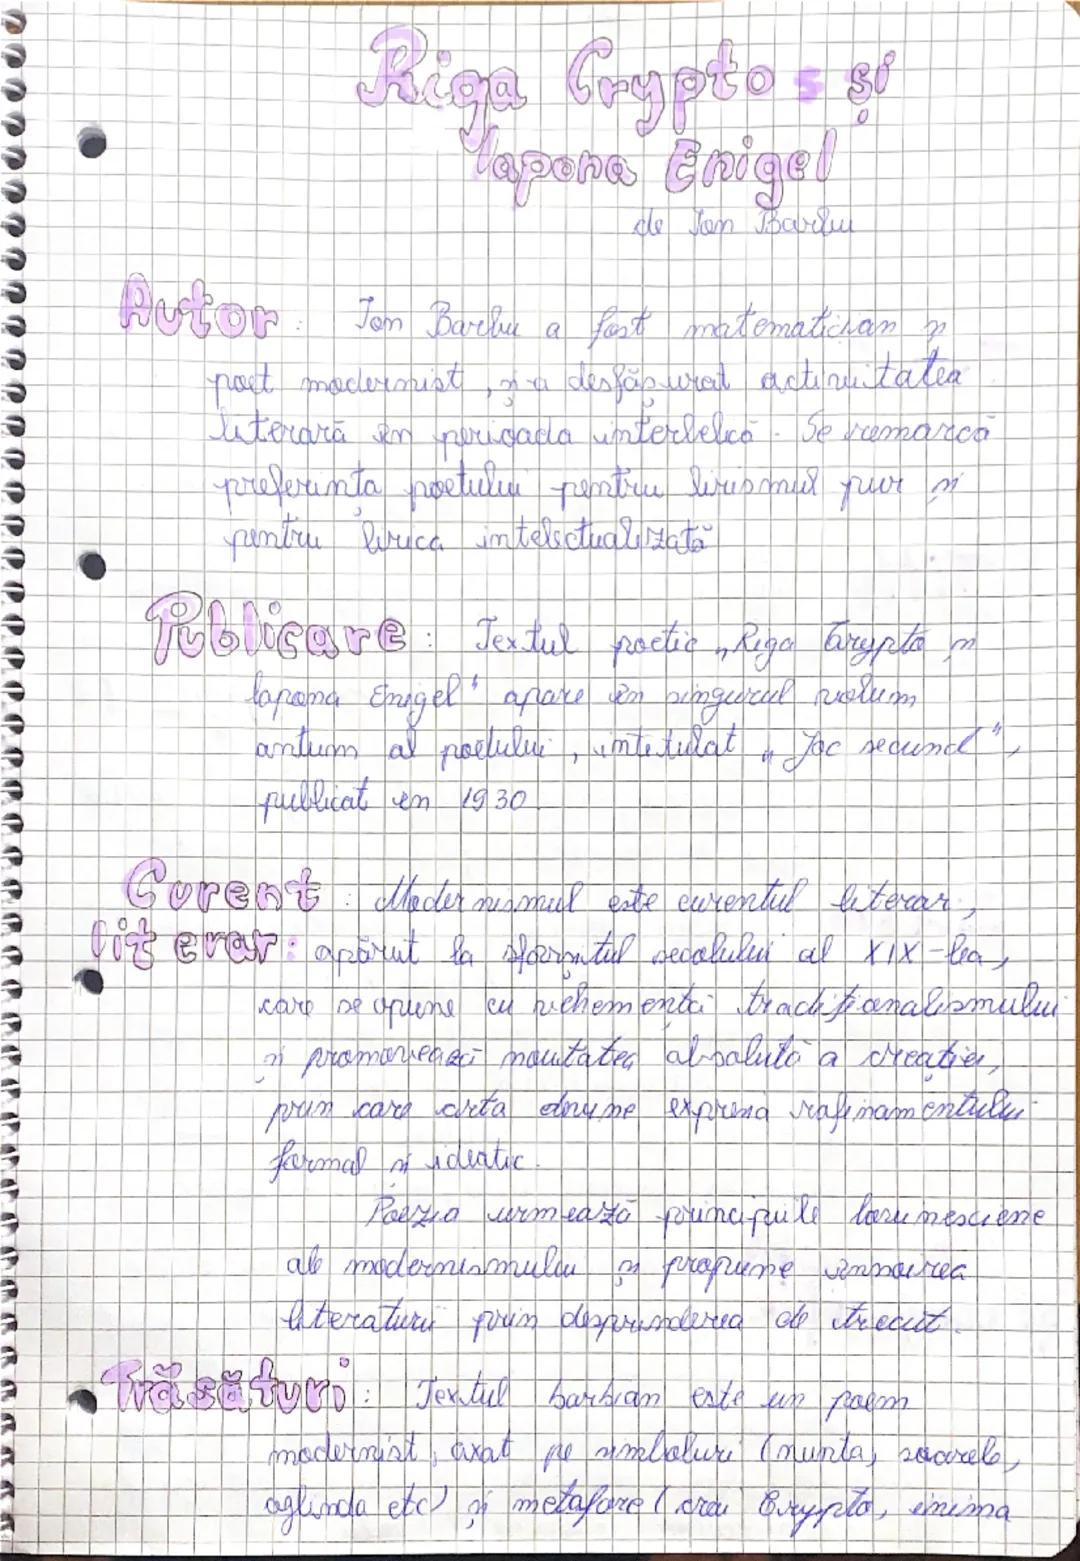 Riga Crypto și
lapona Enigel
de Ion Barbu
Autor: Ion Barbu a fost matematician și
poet modernist, și-a desfășurat activitatea
literară în perioada interbelică. Se remarcă
preferința poetului pentru lirismul pur și
pentru lirica intelectualizată
Publicare: Textul poetic „Riga Crypto și
lapona Enigel" apare în singurul volum
antum al poetului, intitulat „Joc secund",
publicat în 1930.
Curent : Modernismul este curentul literar,
literar: apărut la sfârșitul secolului al XIX-lea,
care se opune cu vehemență tradiționalismului
și promovează noutatea absolută a creației,
prin care arta devine expresia rafinamentului
formal și ideatic.
Poezia urmează principiile lovinesciene
ale modernismului și propune înnoirea
literaturii prin desprinderea de trecut.
Trăsături: Textul barbian este un poem
modernist, axat pe simboluri (nunta, soarele,
oglinda etc) și metafore (craiu Crypto, inima